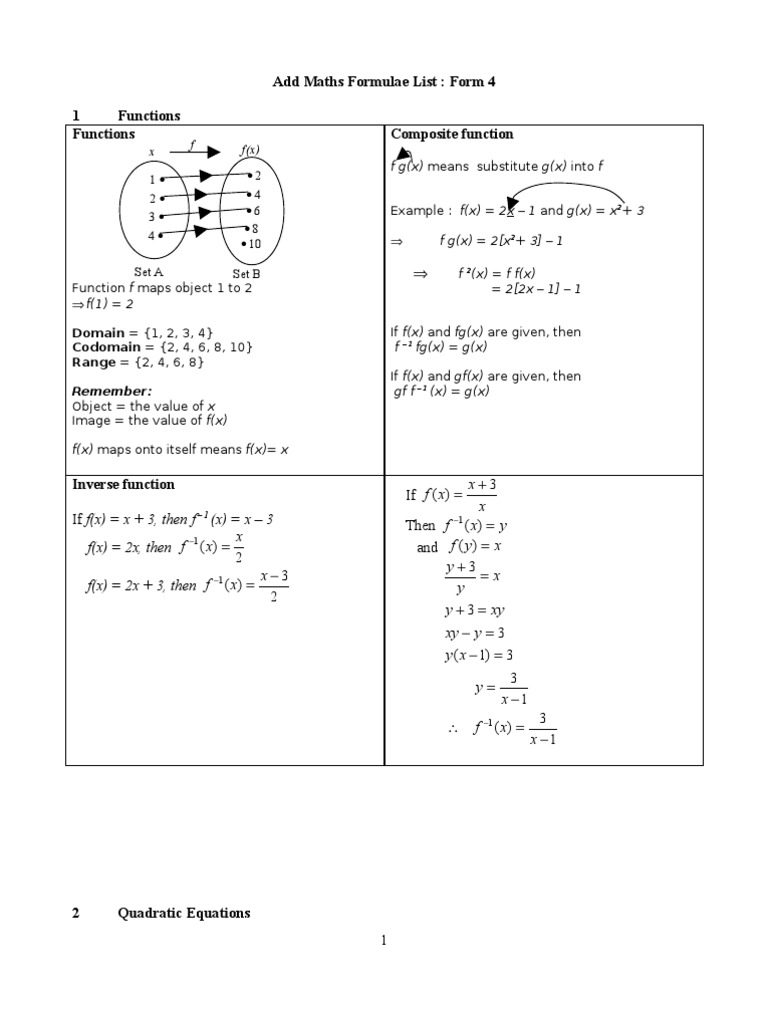 Add Maths Formulae List : Form 4
1 Functions
Functions
x f f(x)
1 2
2 4
3 6
4 8
10
Set A Set B
Function f maps object 1 to 2
⇒f(1) = 2
Domain = {1, 2, 3, 4}
Codomain = {2, 4, 6, 8, 10}
Range = {2, 4, 6, 8}
Remember:
Object = the value of x
Image = the value of f(x)
f(x) maps onto itself means f(x)= x
Composite function
f g(x) means substitute g(x) into f
Example : f(x) = 2x – 1 and g(x) = x²+ 3
⇒ f g(x) = 2[x²+ 3] – 1
⇒ f ²(x) = f f(x)
= 2[2x – 1] – 1
If f(x) and fg(x) are given, then
f⁻¹ fg(x) = g(x)
If f(x) and gf(x) are given, then
gf f⁻¹ (x) = g(x)
Inverse function
If f(x) = x + 3, then f⁻¹ (x) = x – 3
f(x) = 2x, then f⁻¹(x) = x/2
f(x) = 2x + 3, then f⁻¹(x) = (x – 3)/2
If f(x) = (x + 3)/x
Then f⁻¹(x) = y
and f(y) = x
(y + 3)/y = x
y + 3 = xy
xy – y = 3
y(x – 1) = 3
y = 3/(x – 1)
∴ f⁻¹(x) = 3/(x – 1)
2 Quadratic Equations
1